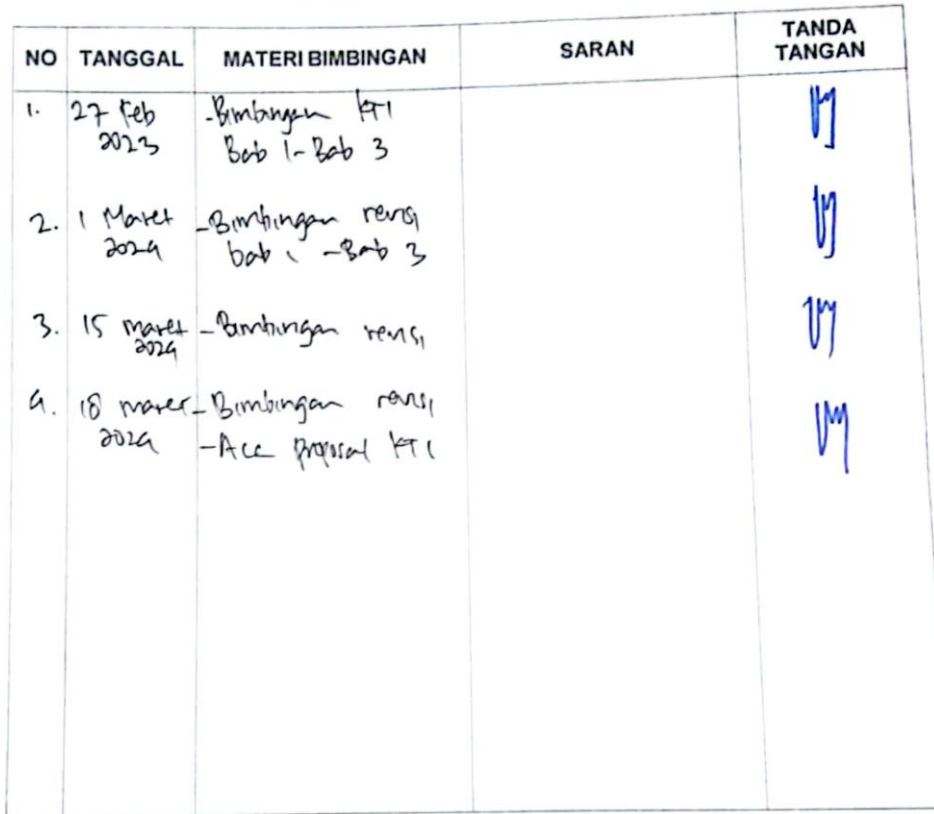 NO TANGGAL MATERI BIMBINGAN SARAN TANDA TANGAN
1. 27 Feb 2023 -Bimbingan KTI
Bab 1-Bab 3
2. 1 Maret 2024 -Bimbingan revisi
bab 1 -Bab 3
3. 15 maret 2024 -Bimbingan revisi
4. 18 maret 2024 -Bimbingan revisi
-Acc proposal KTI